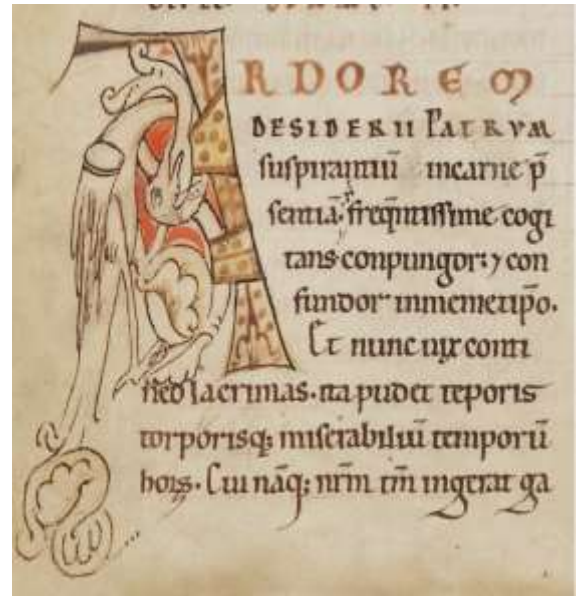 ARDOREM
DESIDERII PATRUM
suspirantiū incarne p̄
sentiā freqūtissime cogi
tans conpungor: ⁊ con
fundor inmemetipso.
Et nunc uix conti
neo lacrimas. ita pudet teporis
torporisq; miserabiliū temporū
hoꝝ. Cui nāq; nr̄m tm̄ ingerat ga